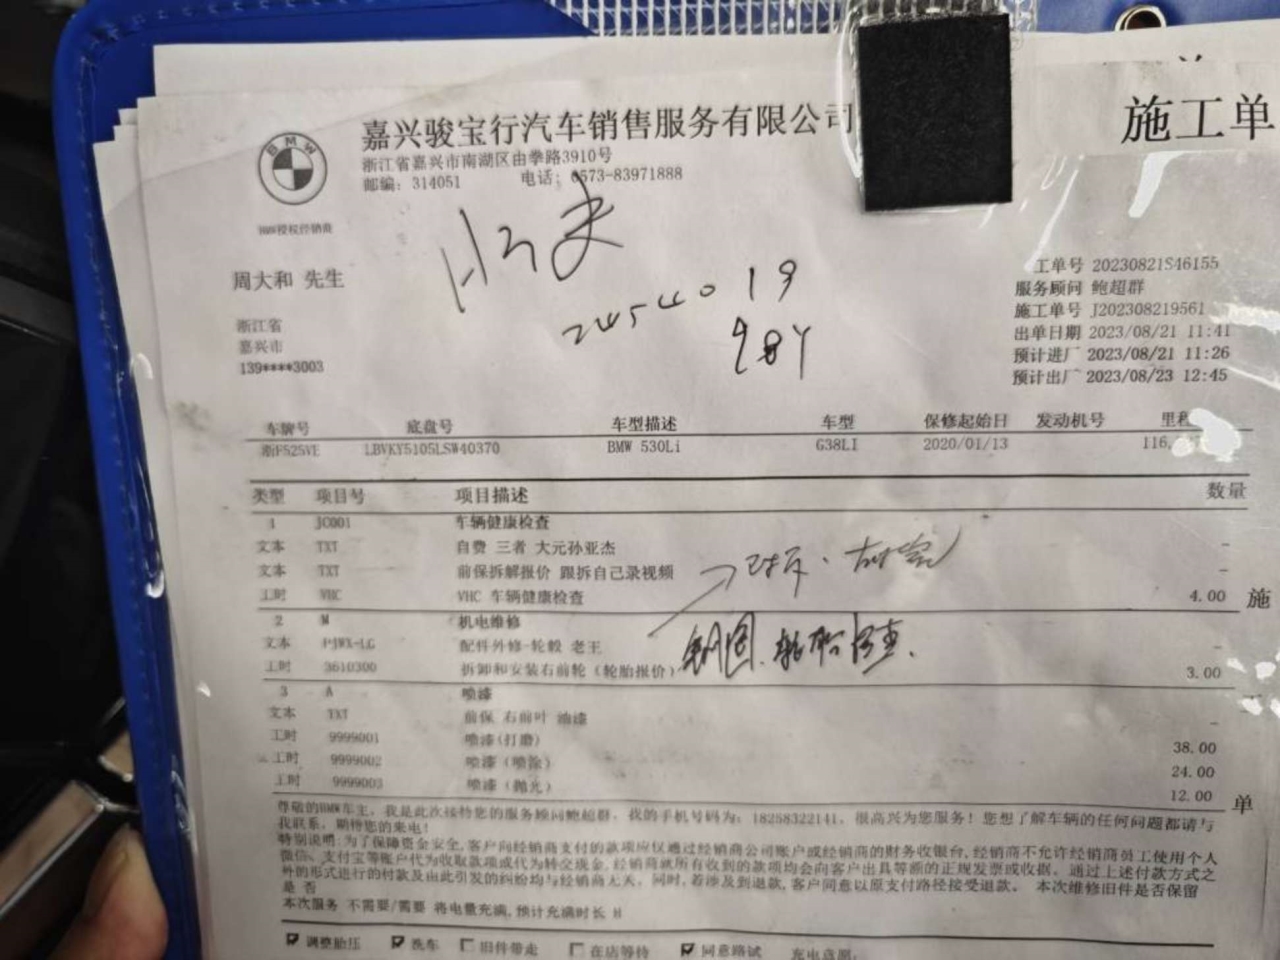 施工单
嘉兴骏宝行汽车销售服务有限公司
浙江省嘉兴市南湖区由拳路3910号
邮编：314051 电话：0573-83971888
BMW
BMW授权经销商
周大和 先生
浙江省
嘉兴市
139****3003
2454019
984
工单号 20230821S46155
服务顾问 鲍超群
施工单号 J202308219561
出单日期 2023/08/21 11:41
预计进厂 2023/08/21 11:26
预计出厂 2023/08/23 12:45
车牌号 底盘号 车型描述 车型 保修起始日 发动机号 里程
浙F525VE LBVKY5105LSW40370 BMW 530Li G38LI 2020/01/13 116,
类型 项目号 项目描述 数量
1 JC001 车辆健康检查
文本 TXT 自费 三者 大元孙亚杰 -
文本 TXT 前保拆解报价 跟拆自己录视频 -
工时 VHC VHC 车辆健康检查 4.00
施
2 M 机电维修
文本 PJWX-LG 配件外修-轮毂 老王
工时 3610300 拆卸和安装右前轮（轮胎报价） 3.00
钢圈、轮胎
3 A 喷漆 -
文本 TXT 前保 右前叶 油漆 -
工时 9999001 喷漆(打磨) 38.00
工时 9999002 喷漆（喷涂） 24.00
工时 9999003 喷漆（抛光） 12.00
单
尊敬的BMW车主，我是此次接待您的服务顾问鲍超群，我的手机号码为：18258322141，很高兴为您服务！您想了解车辆的任何问题都请与
我联系，期待您的来电！
特别说明：为了保障资金安全，客户向经销商支付的款项应仅通过经销商公司账户或经销商的财务收银台，经销商不允许经销商员工使用个人
微信、支付宝等账户代为收取款项或代为转交现金，经销商就所有收到的款项均会向客户出具等额的正规发票或收据。通过上述付款方式之
外的形式进行的付款及由此引发的纠纷均与经销商无关，同时，若涉及到退款，客户同意以原支付路径接受退款。 本次维修旧件是否保留
是 否
本次服务 不需要/需要 将电量充满，预计充满时长 H
调整胎压 洗车 旧件带走 在店等待 同意路试 充电意愿：